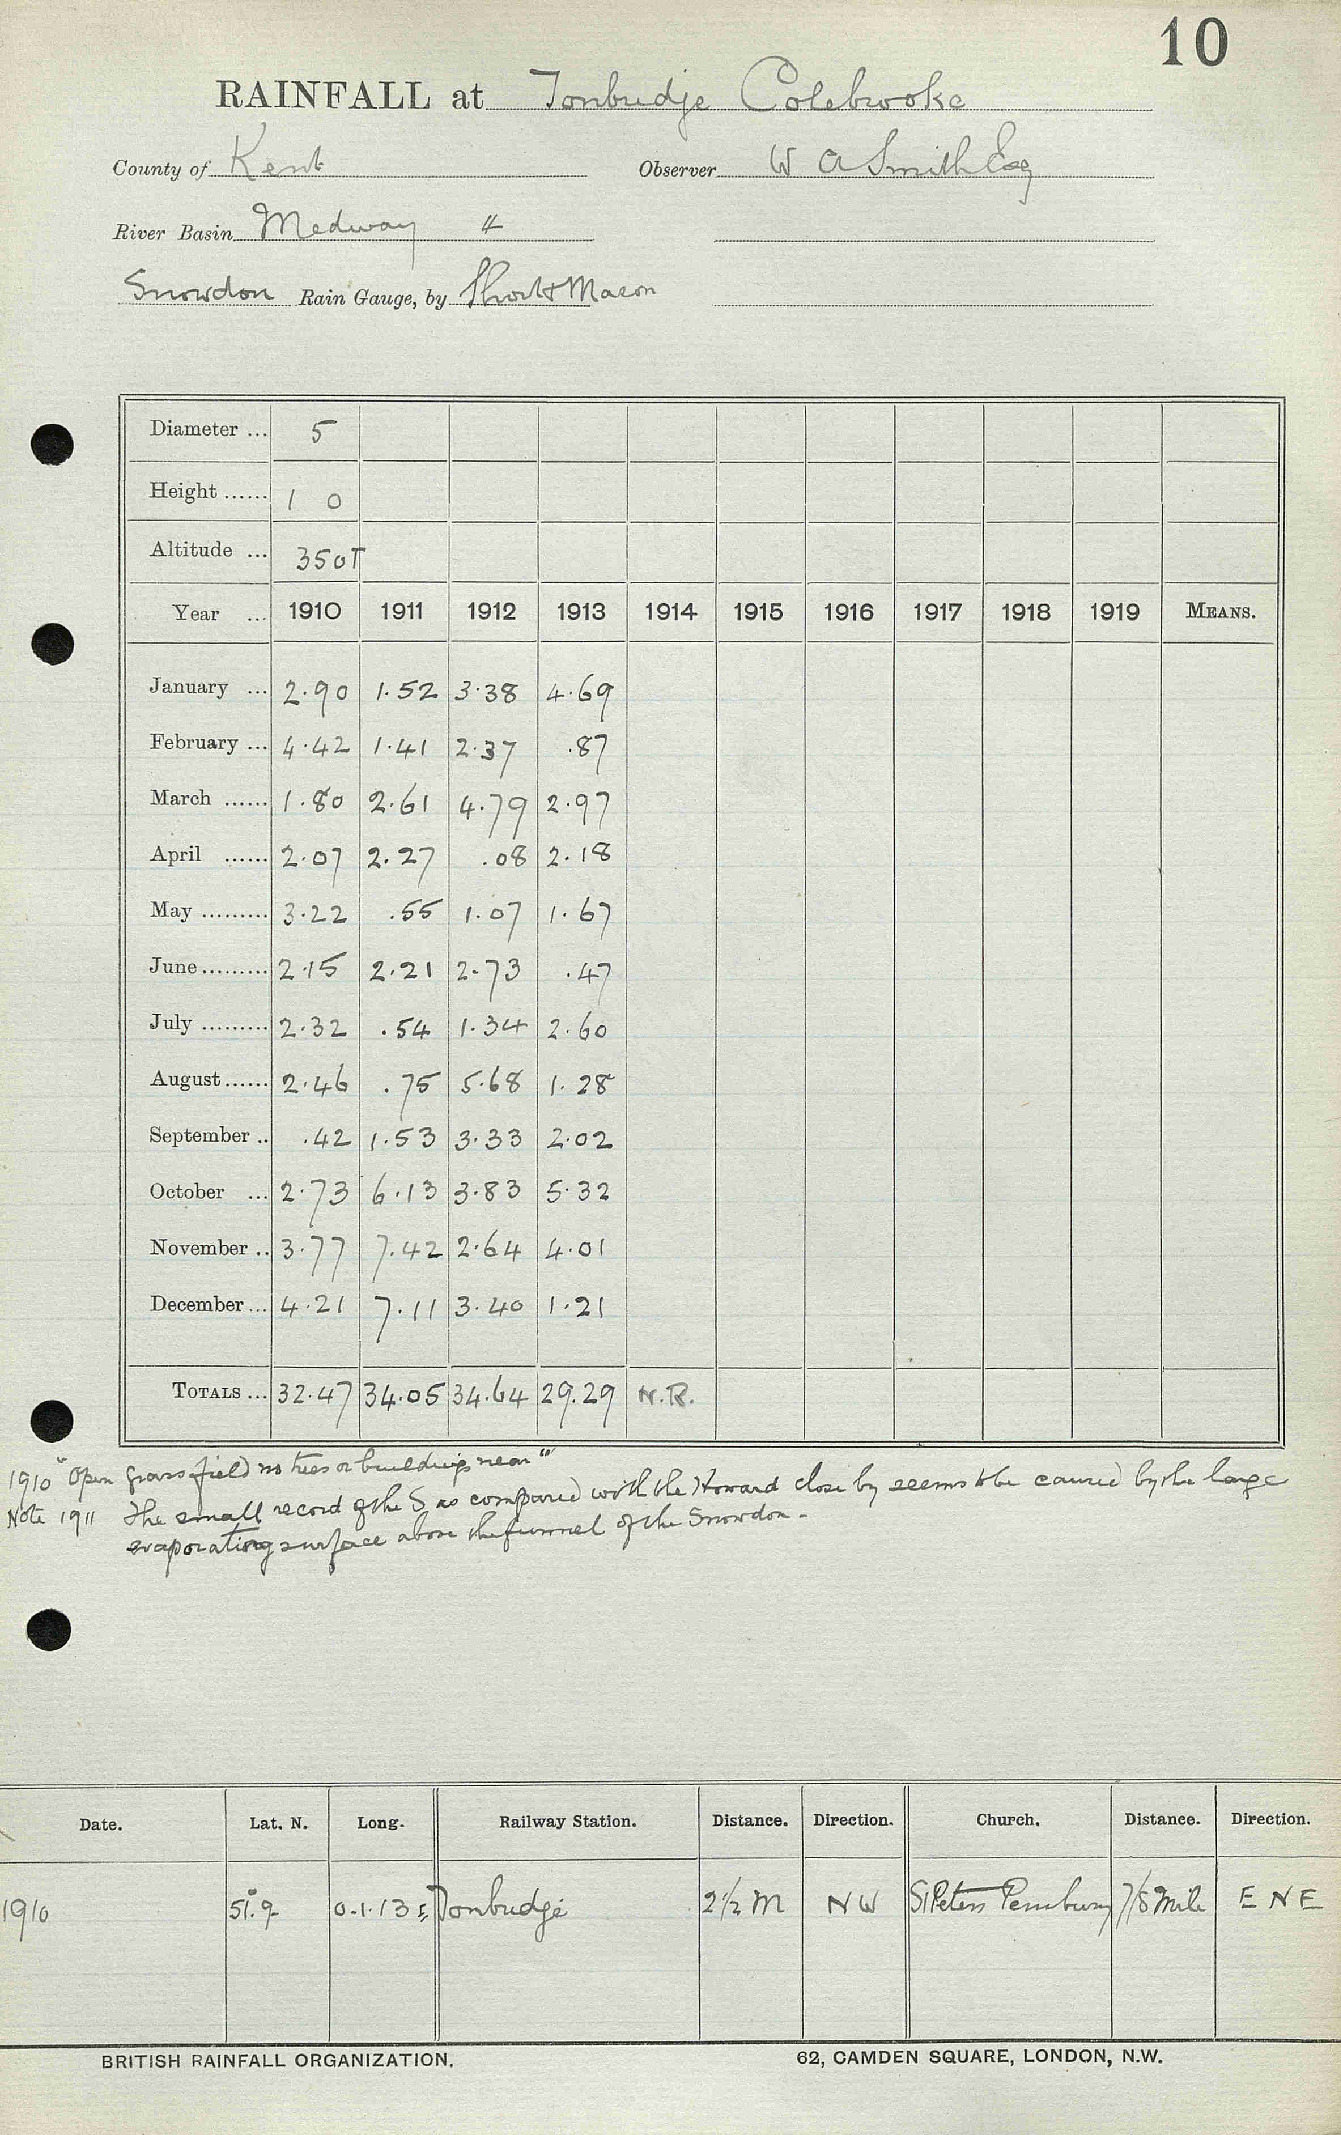 10
RAINFALL at Tonbridge Colebrooke
County of Kent Observer W A Smith Esq
River Basin Medway 4
Snowdon Rain Gauge, by Short & Mason
Diameter ... 5
Height ...... 1 0
Altitude ... 350T
Year ... 1910 1911 1912 1913 1914 1915 1916 1917 1918 1919 MEANS.
January ... 2.90 1.52 3.38 4.69
February ... 4.42 1.41 2.37 .87
March ...... 1.80 2.61 4.79 2.97
April ...... 2.07 2.27 .08 2.18
May ......... 3.22 .55 1.07 1.67
June ......... 2.15 2.21 2.73 .47
July ......... 2.32 .54 1.34 2.60
August ...... 2.46 .75 5.68 1.28
September .. .42 1.53 3.33 2.02
October ... 2.73 6.13 3.83 5.32
November .. 3.77 7.42 2.64 4.01
December ... 4.21 7.11 3.40 1.21
TOTALS ... 32.47 34.05 34.64 29.29 N.R.
1910 "Open grass field no trees or buildings near"
Note 1911 The small record of the S as compared with the Howard close by seems to be caused by the large
evaporating surface above the funnel of the Snowdon.
Date. Lat. N. Long. Railway Station. Distance. Direction. Church. Distance. Direction.
1910 51°.9 0.1.13 E Tonbridge 2½ M NW St Peters Pembury 7/8 Mile E N E
BRITISH RAINFALL ORGANIZATION. 62, CAMDEN SQUARE, LONDON, N.W.